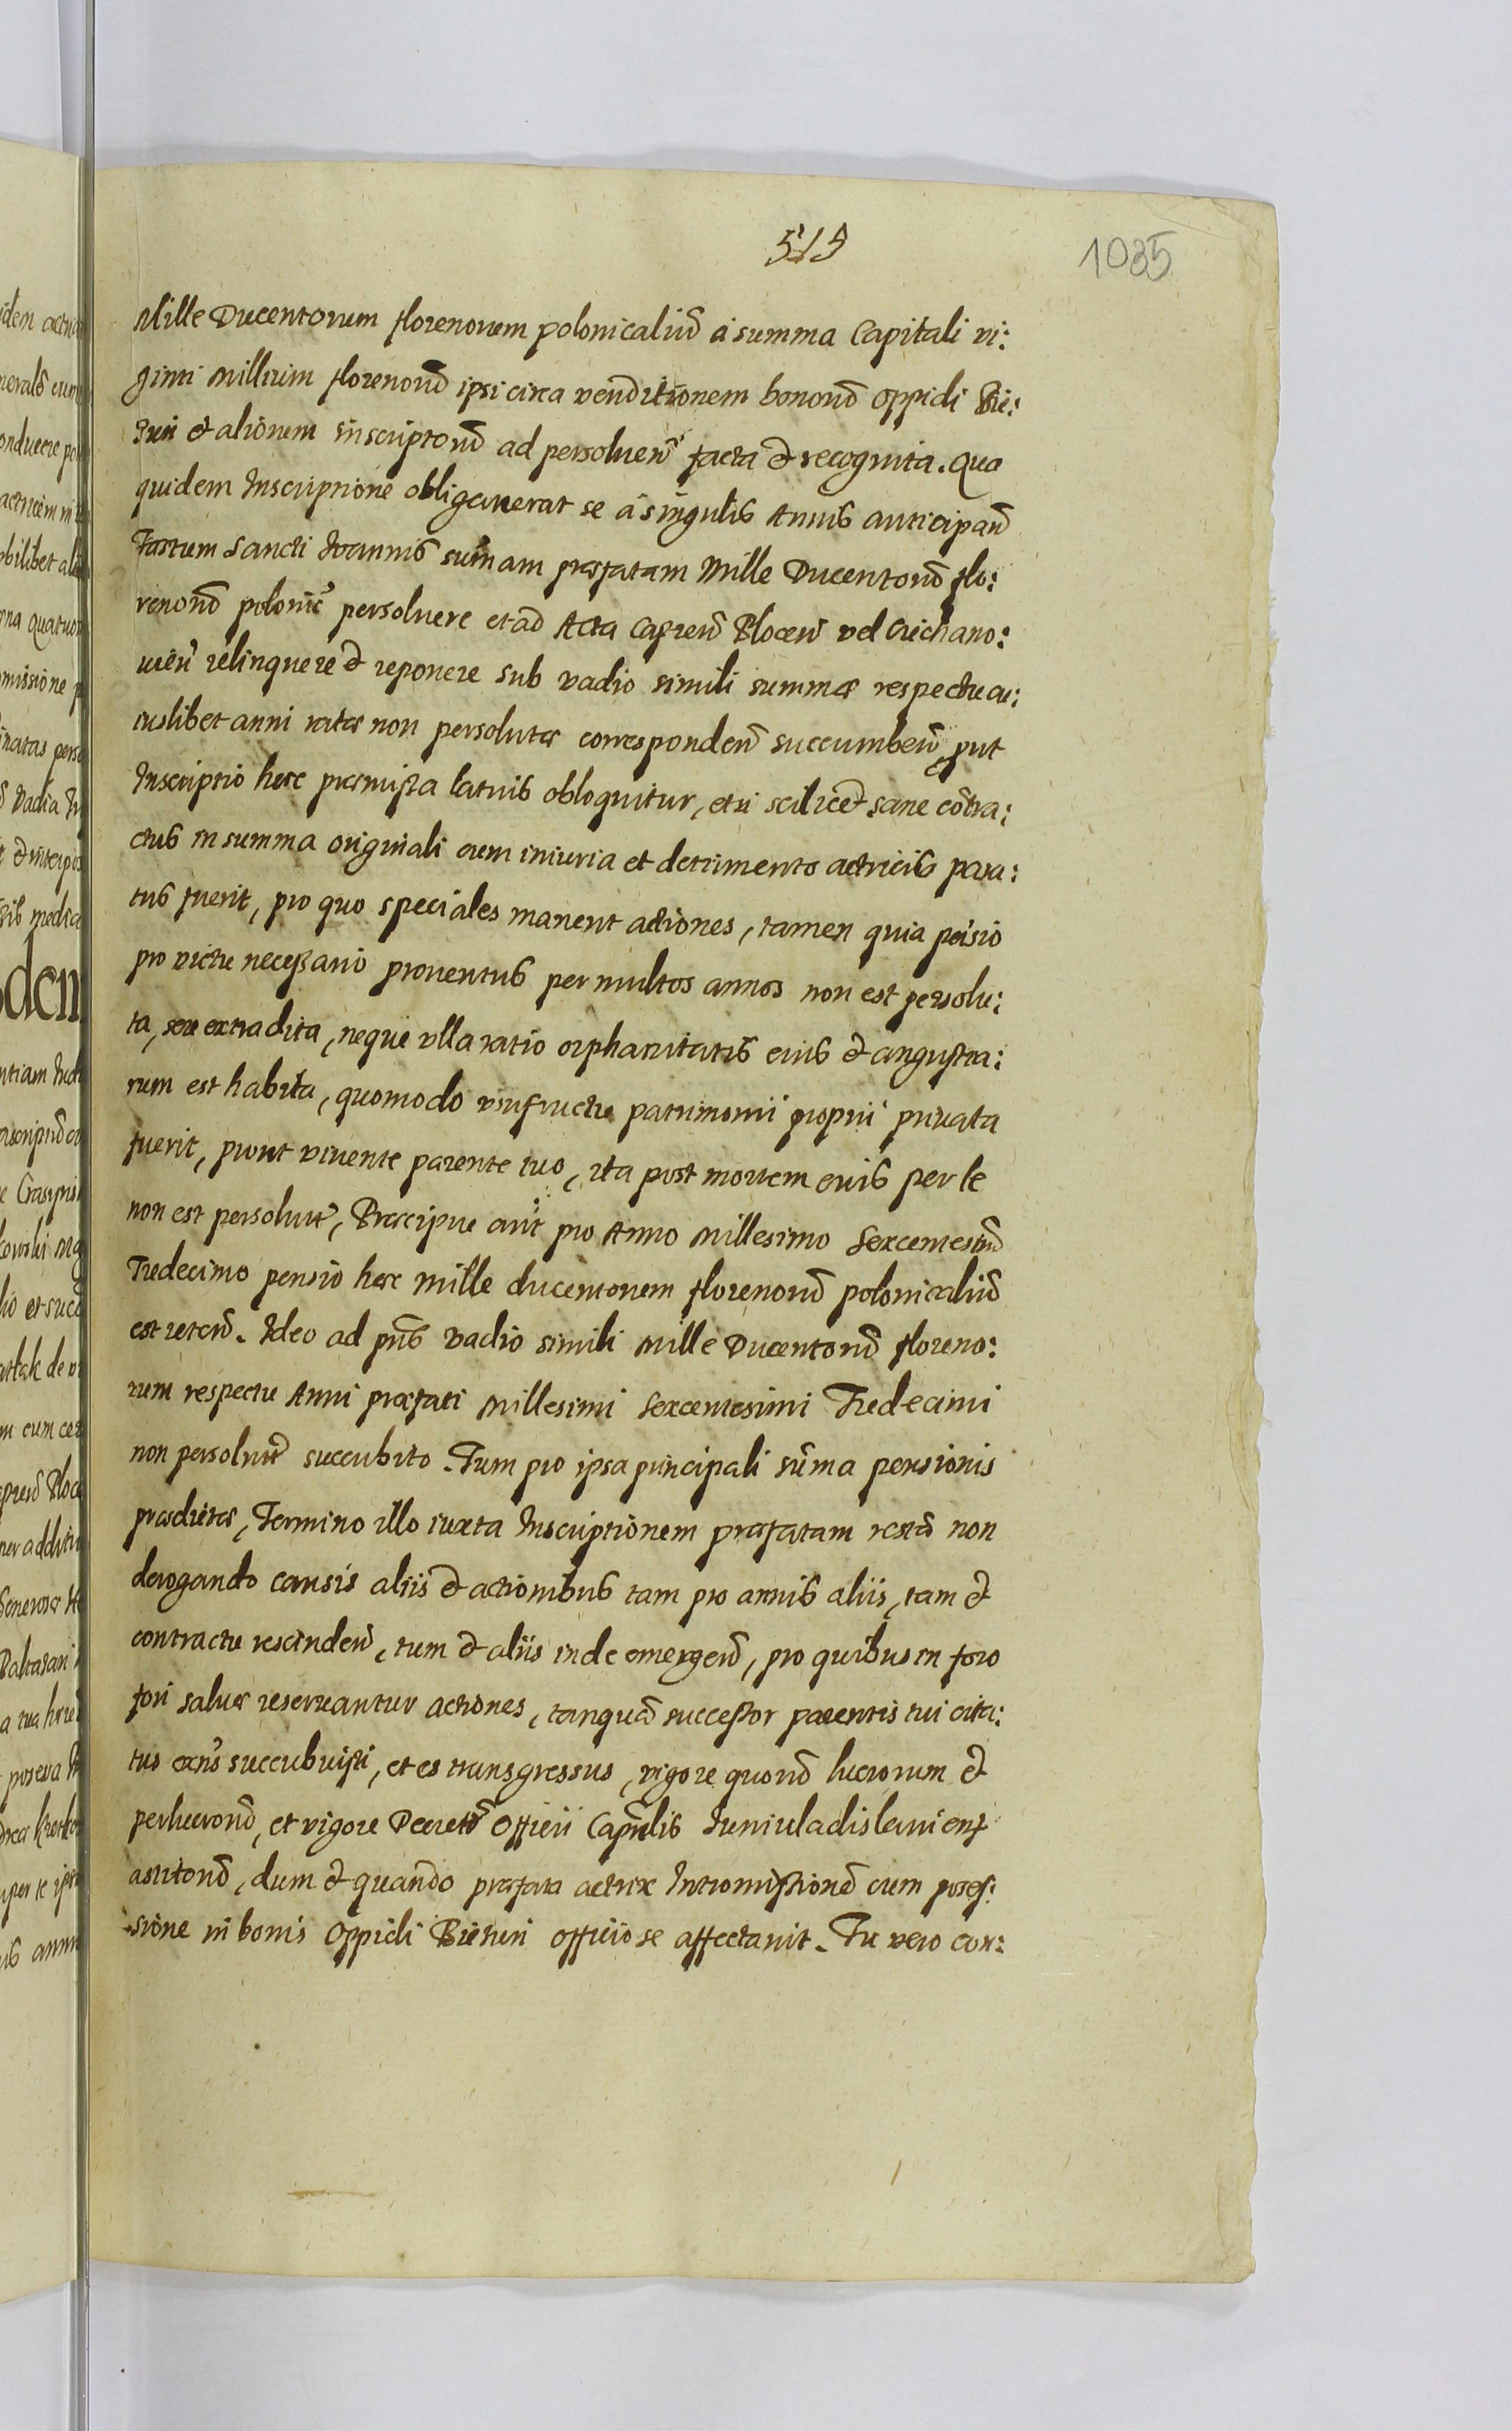 519
1035
Mille Ducentorum florenorum polonicaliũ a summa Capitali vi:
ginti Millium florenorũ ipsi circa venditionem bonorũ Oppidi Bie:
zuń et aliorum inscriptorũ ad persoluenũ facta et recognita. Qua
quidem Inscriptione obligauerat se a singulis Annis anticipanũ
Festum Sancti Ioannis sum̃am præfatam Mille Ducentorũ flo:
renorũ polonic̃ persoluere et ad Acta Castren̄ Plocen̄ vel Ciechano:
uien̄ relinquere et reponere sub vadio simili summæ respectu cu:
iuslibet anni ratæ non persolutæ corresponden̄ succumben̄, put
Inscriptio hæc præmissa latius obloquitur, et si scilicet sane cõtra:
ctus in summa originali cum iniuria et detrimento actricis para:
tus fuerit, pro quo speciales manent actiones, tamen quia pensio
pro victu necessario prouentus per multos annos non est persolu:
ta, seu extradita, neque vlla ratio orphanitatis eius et angustia:
rum est habita, quomodo vsufructu patrimonii proprii priuata
fuerit, prout viuente parente tuo, ita post mortem eius per te
non est persolut̃, Præcipue aũt pro Anno Millesimo Sexcentesimõ
Tredecimo pensio hæc Mille ducentorum florenorũ polonicaliũ
est retenũ. Ideo ad pñs vadio simili Mille Ducentorũ floreno:
rum respectu Anni præfati Millesimi Sexcentesimi Tredecimi
non persolut̃ succubito. Tum pro ipsa principali sũma pensionis
prædictæ, Termino illo iuxta Inscriptionem præfatam restã non
derogando causis aliis et actionibus tam pro annis aliis, tam et
contractu rescinden̄, tum et aliis inde emergen̄, pro quibus in foro
fori saluæ reseruantur actiones, tanquã successor parentis tui cita:
tus succubuisti, et es transgressus, vigore quorũ lucrorum et
perlucrorũ, et vigore Decretõ Officii Capñlis Iuniuladislauiens
astitorũ, dum et quando præfata actrix Intromissionẽ cum posses:
sione in bonis Oppidi Bieżuń officiose affectauit. Tu vero con: